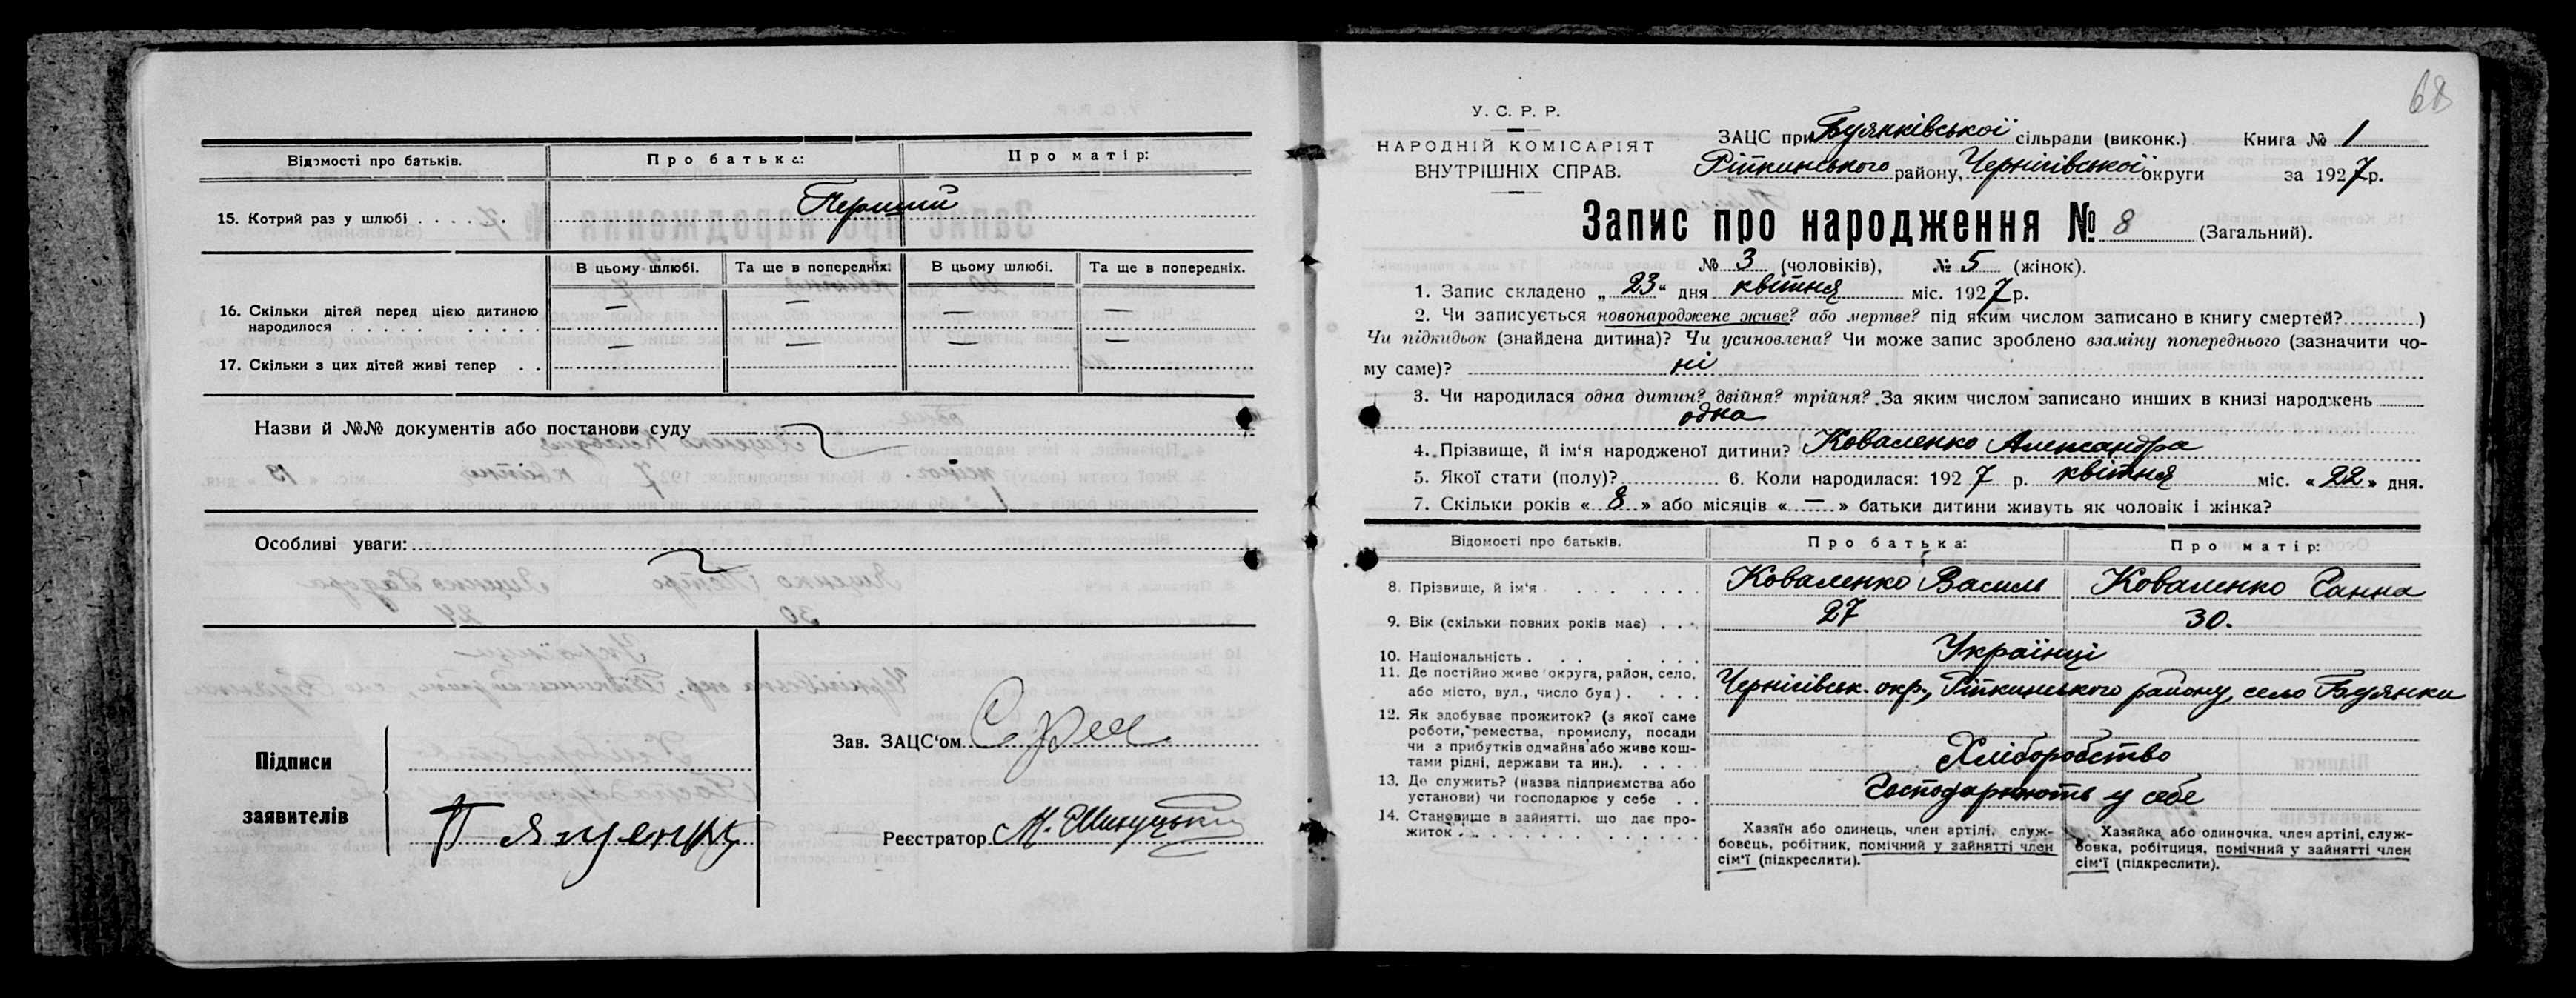 Відомості про батьків. Про батька: Про матір:
15. Котрий раз у шлюбі . . . . . . Перший
В цьому шлюбі. Та ще в попередніх. В цьому шлюбі. Та ще в попередніх.
16. Скільки дітей перед цією дитиною — — — —
народилося . . . . . . . . . . .
17. Скільки з цих дітей живі тепер . . — — — —
Назви й №№ документів або постанови суду
Особливі уваги:
Підписи
заявителів
П Ященко
Зав. ЗАЦС'ом
Реєстратор М.
68
У. С. Р. Р.
НАРОДНІЙ КОМІСАРІЯТ
ВНУТРІШНІХ СПРАВ.
ЗАЦС при Буянківської сільради (виконк.) Книга № 1
Ріпкинського району, Чернігівської округи за 1927р.
Запис про народження № 8 (Загальний).
№ 3 (чоловіків), № 5 (жінок).
1. Запис складено „ 23 “ дня квітня міс. 1927р.
2. Чи записується новонароджене живе? або мертве? під яким числом записано в книгу смертей? )
Чи підкидьок (знайдена дитина)? Чи усиновлена? Чи може запис зроблено взаміну попереднього (зазначити чо-
му саме)? ні
3. Чи народилася одна дитин? двійня? трійня? За яким числом записано инших в книзі народжень
одна
4. Прізвище, й ім'я народженої дитини? Коваленко Александра
5. Якої стати (полу)? 6. Коли народилася: 1927 р. квітня міс. « 22 » дня.
7. Скільки років « 8 » або місяців « — » батьки дитини живуть як чоловік і жінка?
Відомості про батьків. Про батька: Про матір:
8. Прізвище, й ім'я . . . . . . Коваленко Василь Коваленко Ганна
9. Вік (скільки повних років має) . . . 27 30.
10. Національність . . . . . . Українці
11. Де постійно живе округа, район, село,
або місто, вул., число буд) . . . . Чернігівськ. окр., Ріпкинського району, село Буянки
12. Як здобуває прожиток? (з якої саме
роботи, ремества, промислу, посади
чи з прибутків одмайна або живе кош-
тами рідні, держави та ин.). . . . . Хліборобство
13. Де служить? (назва підприємства або
установи) чи господарює у себе . . Господарюють у себе
14. Становище в зайнятті, що дає про-
житок . . . . . . . . . . .
Хазяїн або одинець, член артілі, служ-
бовець, робітник, помічний у зайнятті член
сім'ї (підкреслити).
Хазяйка або одиночка, член артілі, служ-
бовка, робітниця, помічний у зайнятті член
сім'ї (підкреслити).